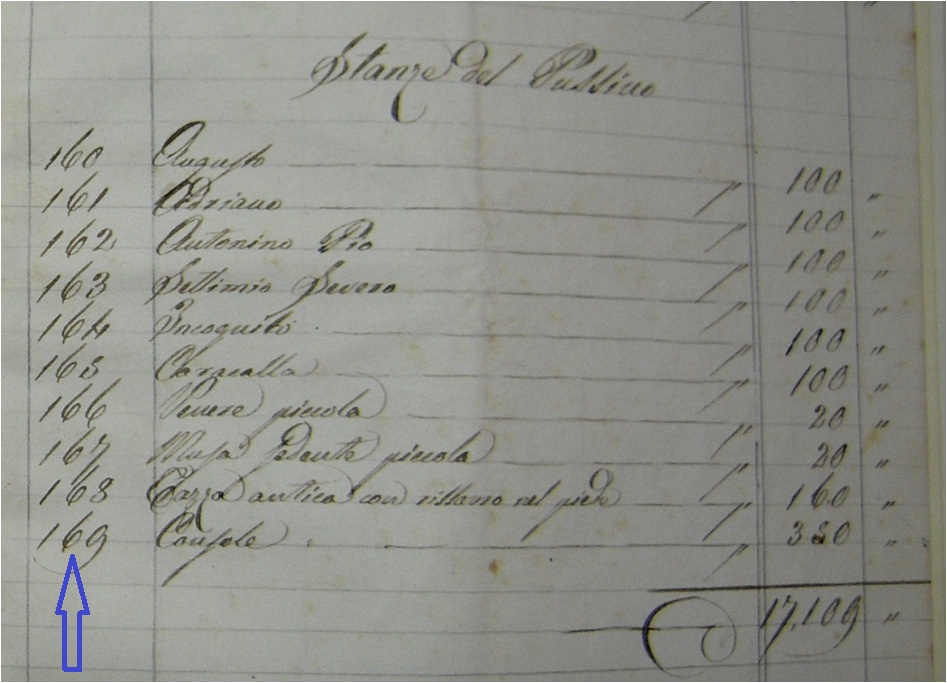 Stanze del Pussino
160 Augusto " 100 "
161 Adriano " 100 "
162 Antonino Pio " 100 "
163 Settimio Severo " 100 "
164 Incognito " 100 "
165 Caracalla " 100 "
166 Venere piccola " 20 "
167 Musa sedente piccola " 20 "
168 Tazza antica con nel piede " 160 "
169 Console "
17,109 "